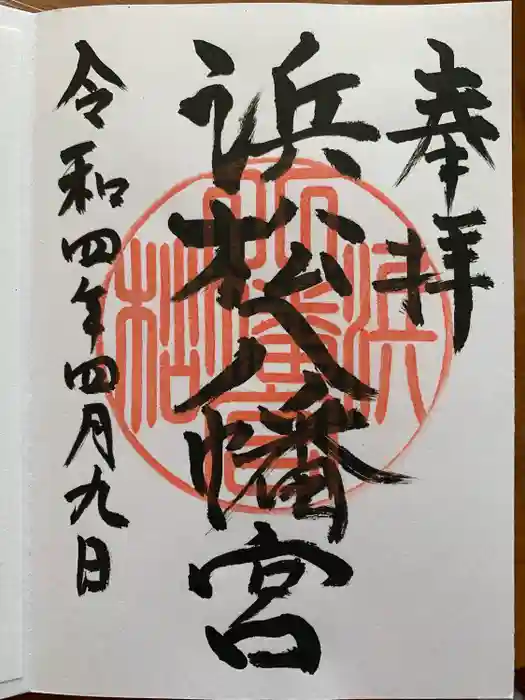 奉拝
浜松八幡宮
令和四年四月九日
浜松
八幡宮